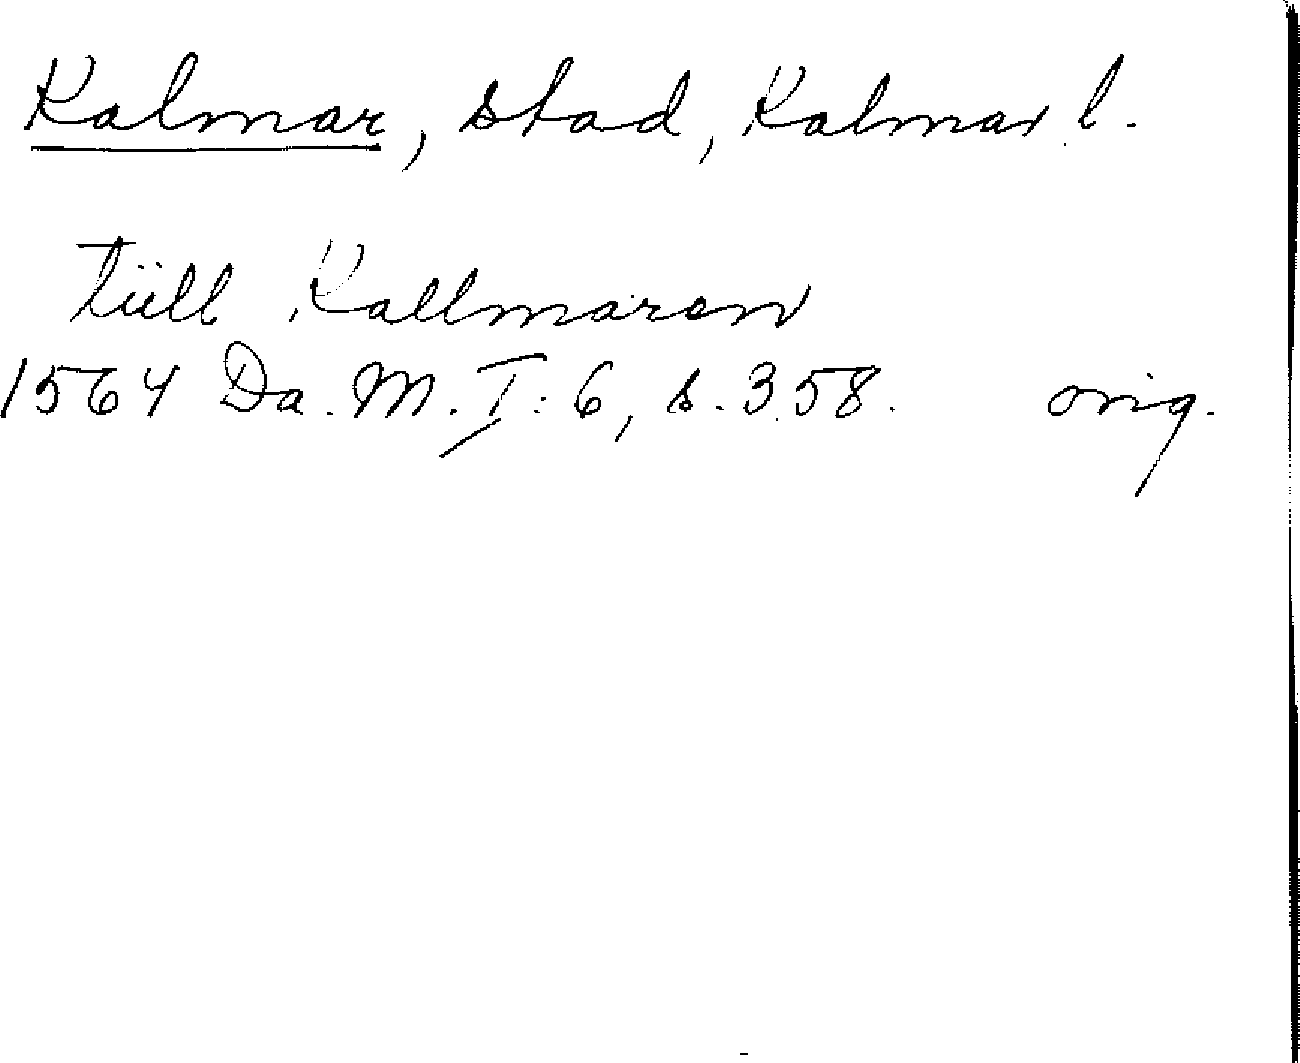 Kalmar, stad, Kalmar l.
tiill Kallmaren
1564 Da. M. I: 6, s. 358. orig.